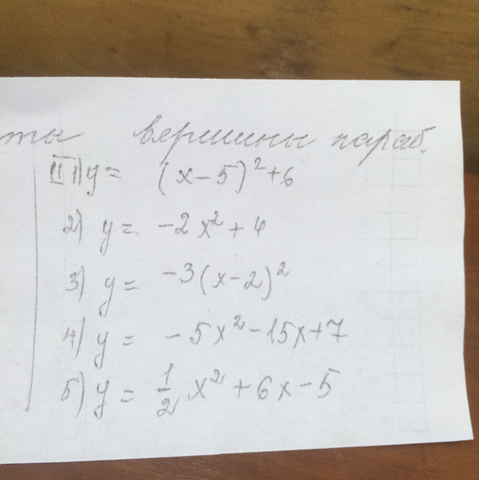 ты вершины параб.
II 1) y = (x-5)²+6
2) y = -2x²+4
3) y = -3(x-2)²
4) y = -5x²-15x+7
5) y = 1/2 x²+6x-5